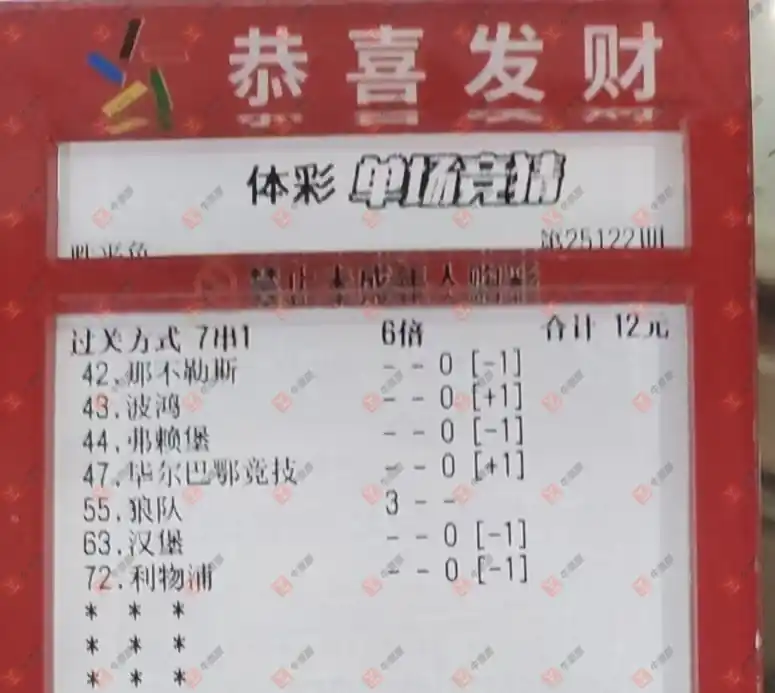 恭喜发财
体彩 单场竞猜
胜平负 第25122期
禁止未成年人购彩
过关方式 7串1 6倍 合计 12元
42.那不勒斯 - - 0 [-1]
43.波鸿 - - 0 [+1]
44.弗赖堡 - - 0 [-1]
47.毕尔巴鄂竞技 - - 0 [+1]
55.狼队 3 - -
63.汉堡 - - 0 [-1]
72.利物浦 - - 0 [-1]
* * *
* * *
* * *